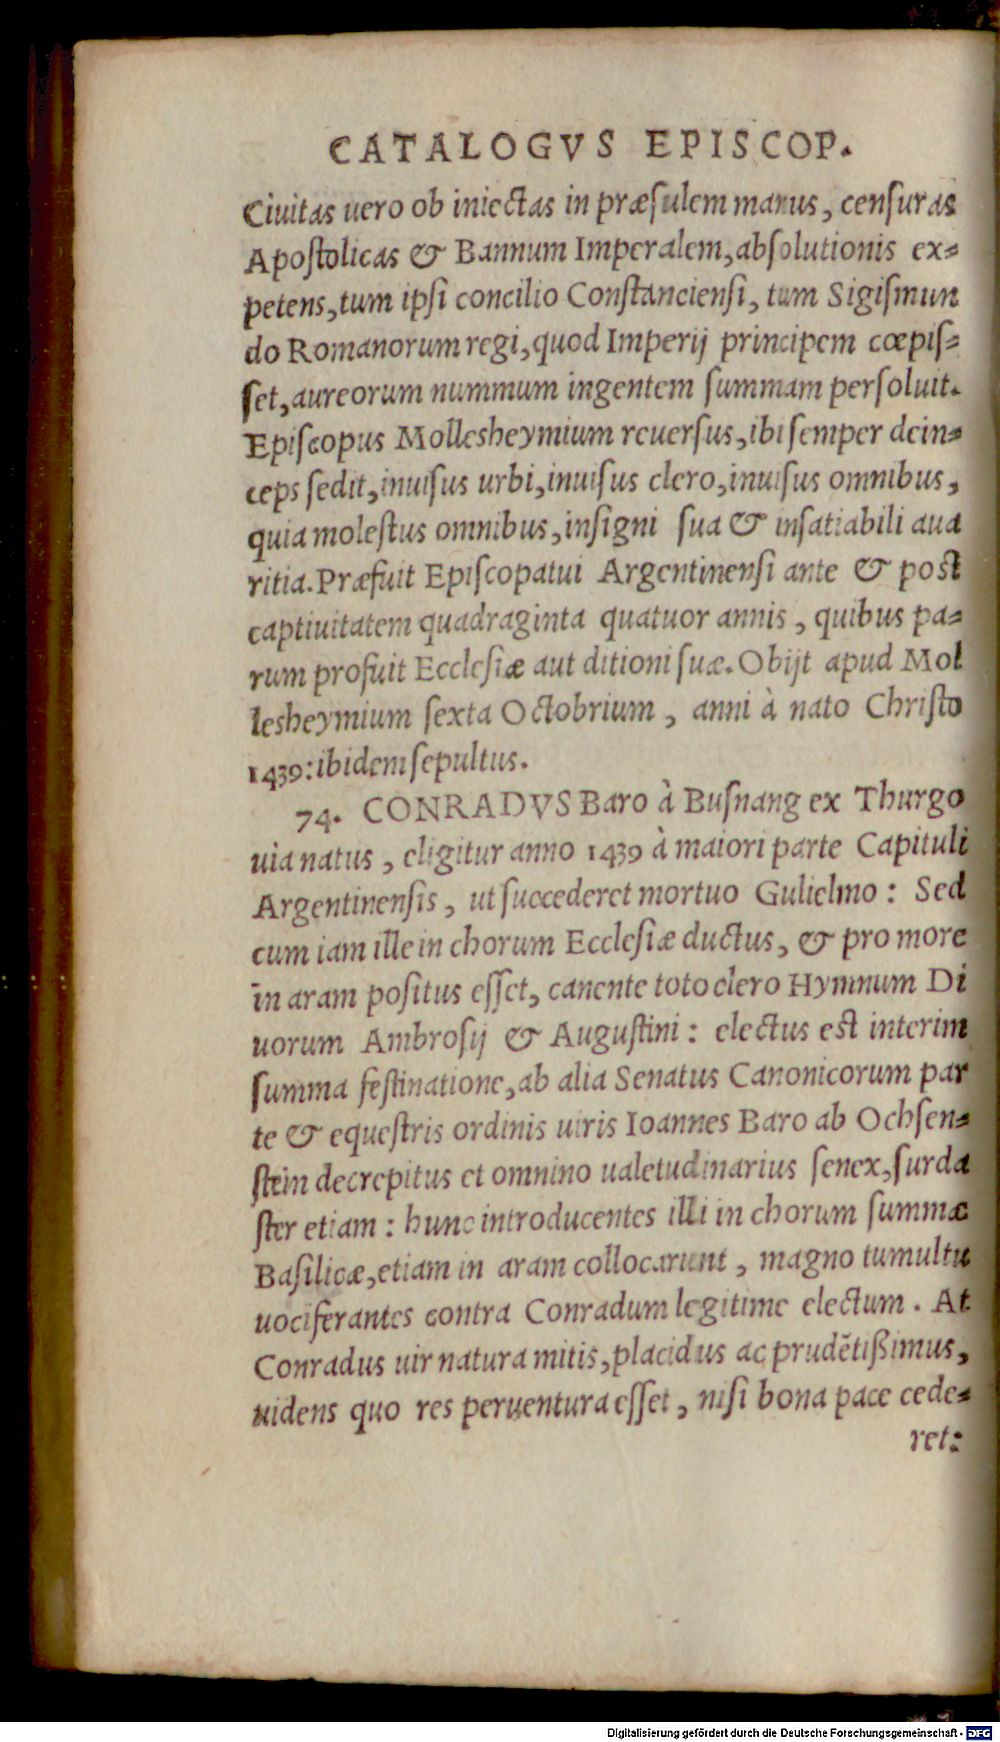 CATALOGVS EPISCOP.
Ciuitas uero ob iniectas in præsulem manus, censuras
Apostolicas & Bannum Imperalem, absolutionis ex-
petens, tum ipsi concilio Constanciensi, tum Sigismun
do Romanorum regi, quod Imperij principem cœpis-
set, aureorum nummum ingentem summam persoluit.
Episcopus Mollesheymium reuersus, ibi semper dein-
ceps sedit, inuisus urbi, inuisus clero, inuisus omnibus,
quia molestus omnibus, insigni sua & insatiabili aua
ritia. Præfuit Episcopatui Argentinensi ante & post
captiuitatem quadraginta quatuor annis, quibus pa-
rum profuit Ecclesiæ aut ditioni suæ. Obijt apud Mol
lesheymium sexta Octobrium, anni à nato Christo
1439: ibidem sepultus.
74. CONRADVS Baro à Busnang ex Thurgo
uia natus, eligitur anno 1439 à maiori parte Capituli
Argentinensis, ut succederet mortuo Gulielmo: Sed
cum iam ille in chorum Ecclesiæ ductus, & pro more
in aram positus esset, canente toto clero Hymnum Di
uorum Ambrosij & Augustini: electus est interim
summa festinatione, ab alia Senatus Canonicorum par
te & equestris ordinis uiris Ioannes Baro ab Ochsen-
stein decrepitus et omnino ualetudinarius senex, surda
ster etiam: hunc introducentes illi in chorum summæ
Basilicæ, etiam in aram collocarunt, magno tumultu
uociferantes contra Conradum legitime electum. At
Conradus uir natura mitis, placidus ac prudētißimus,
uidens quo res peruentura esset, nisi bona pace cede-
ret:
Digitalisierung gefördert durch die Deutsche Forschungsgemeinschaft - DFG